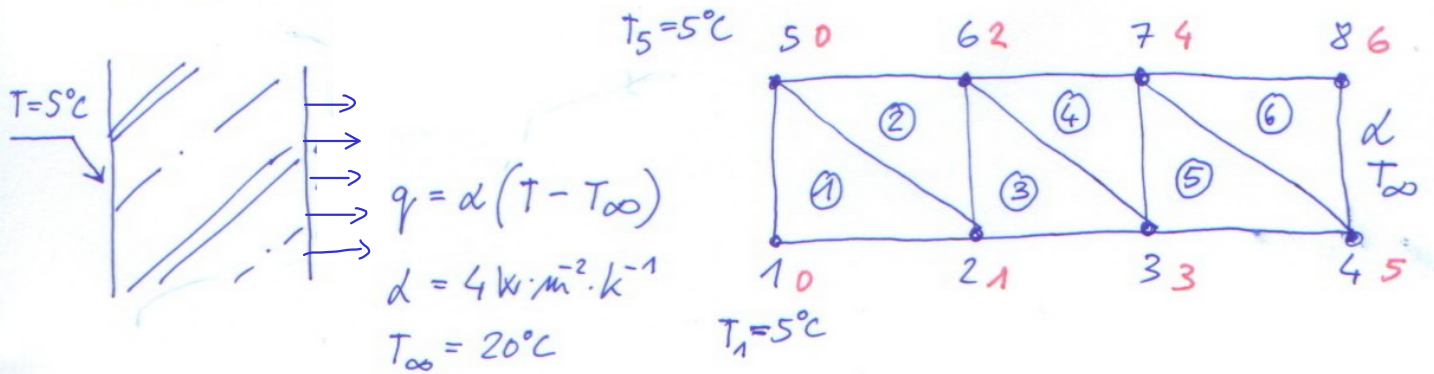 T=5°C
q = α(T - T∞)
α = 4 W·m⁻²·k⁻¹
T∞ = 20°C
T₅=5°C
5 0 6 2 7 4 8 6
② ④ ⑥ α
T∞
① ③ ⑤
1 0 2 1 3 3 4 5
T₁=5°C